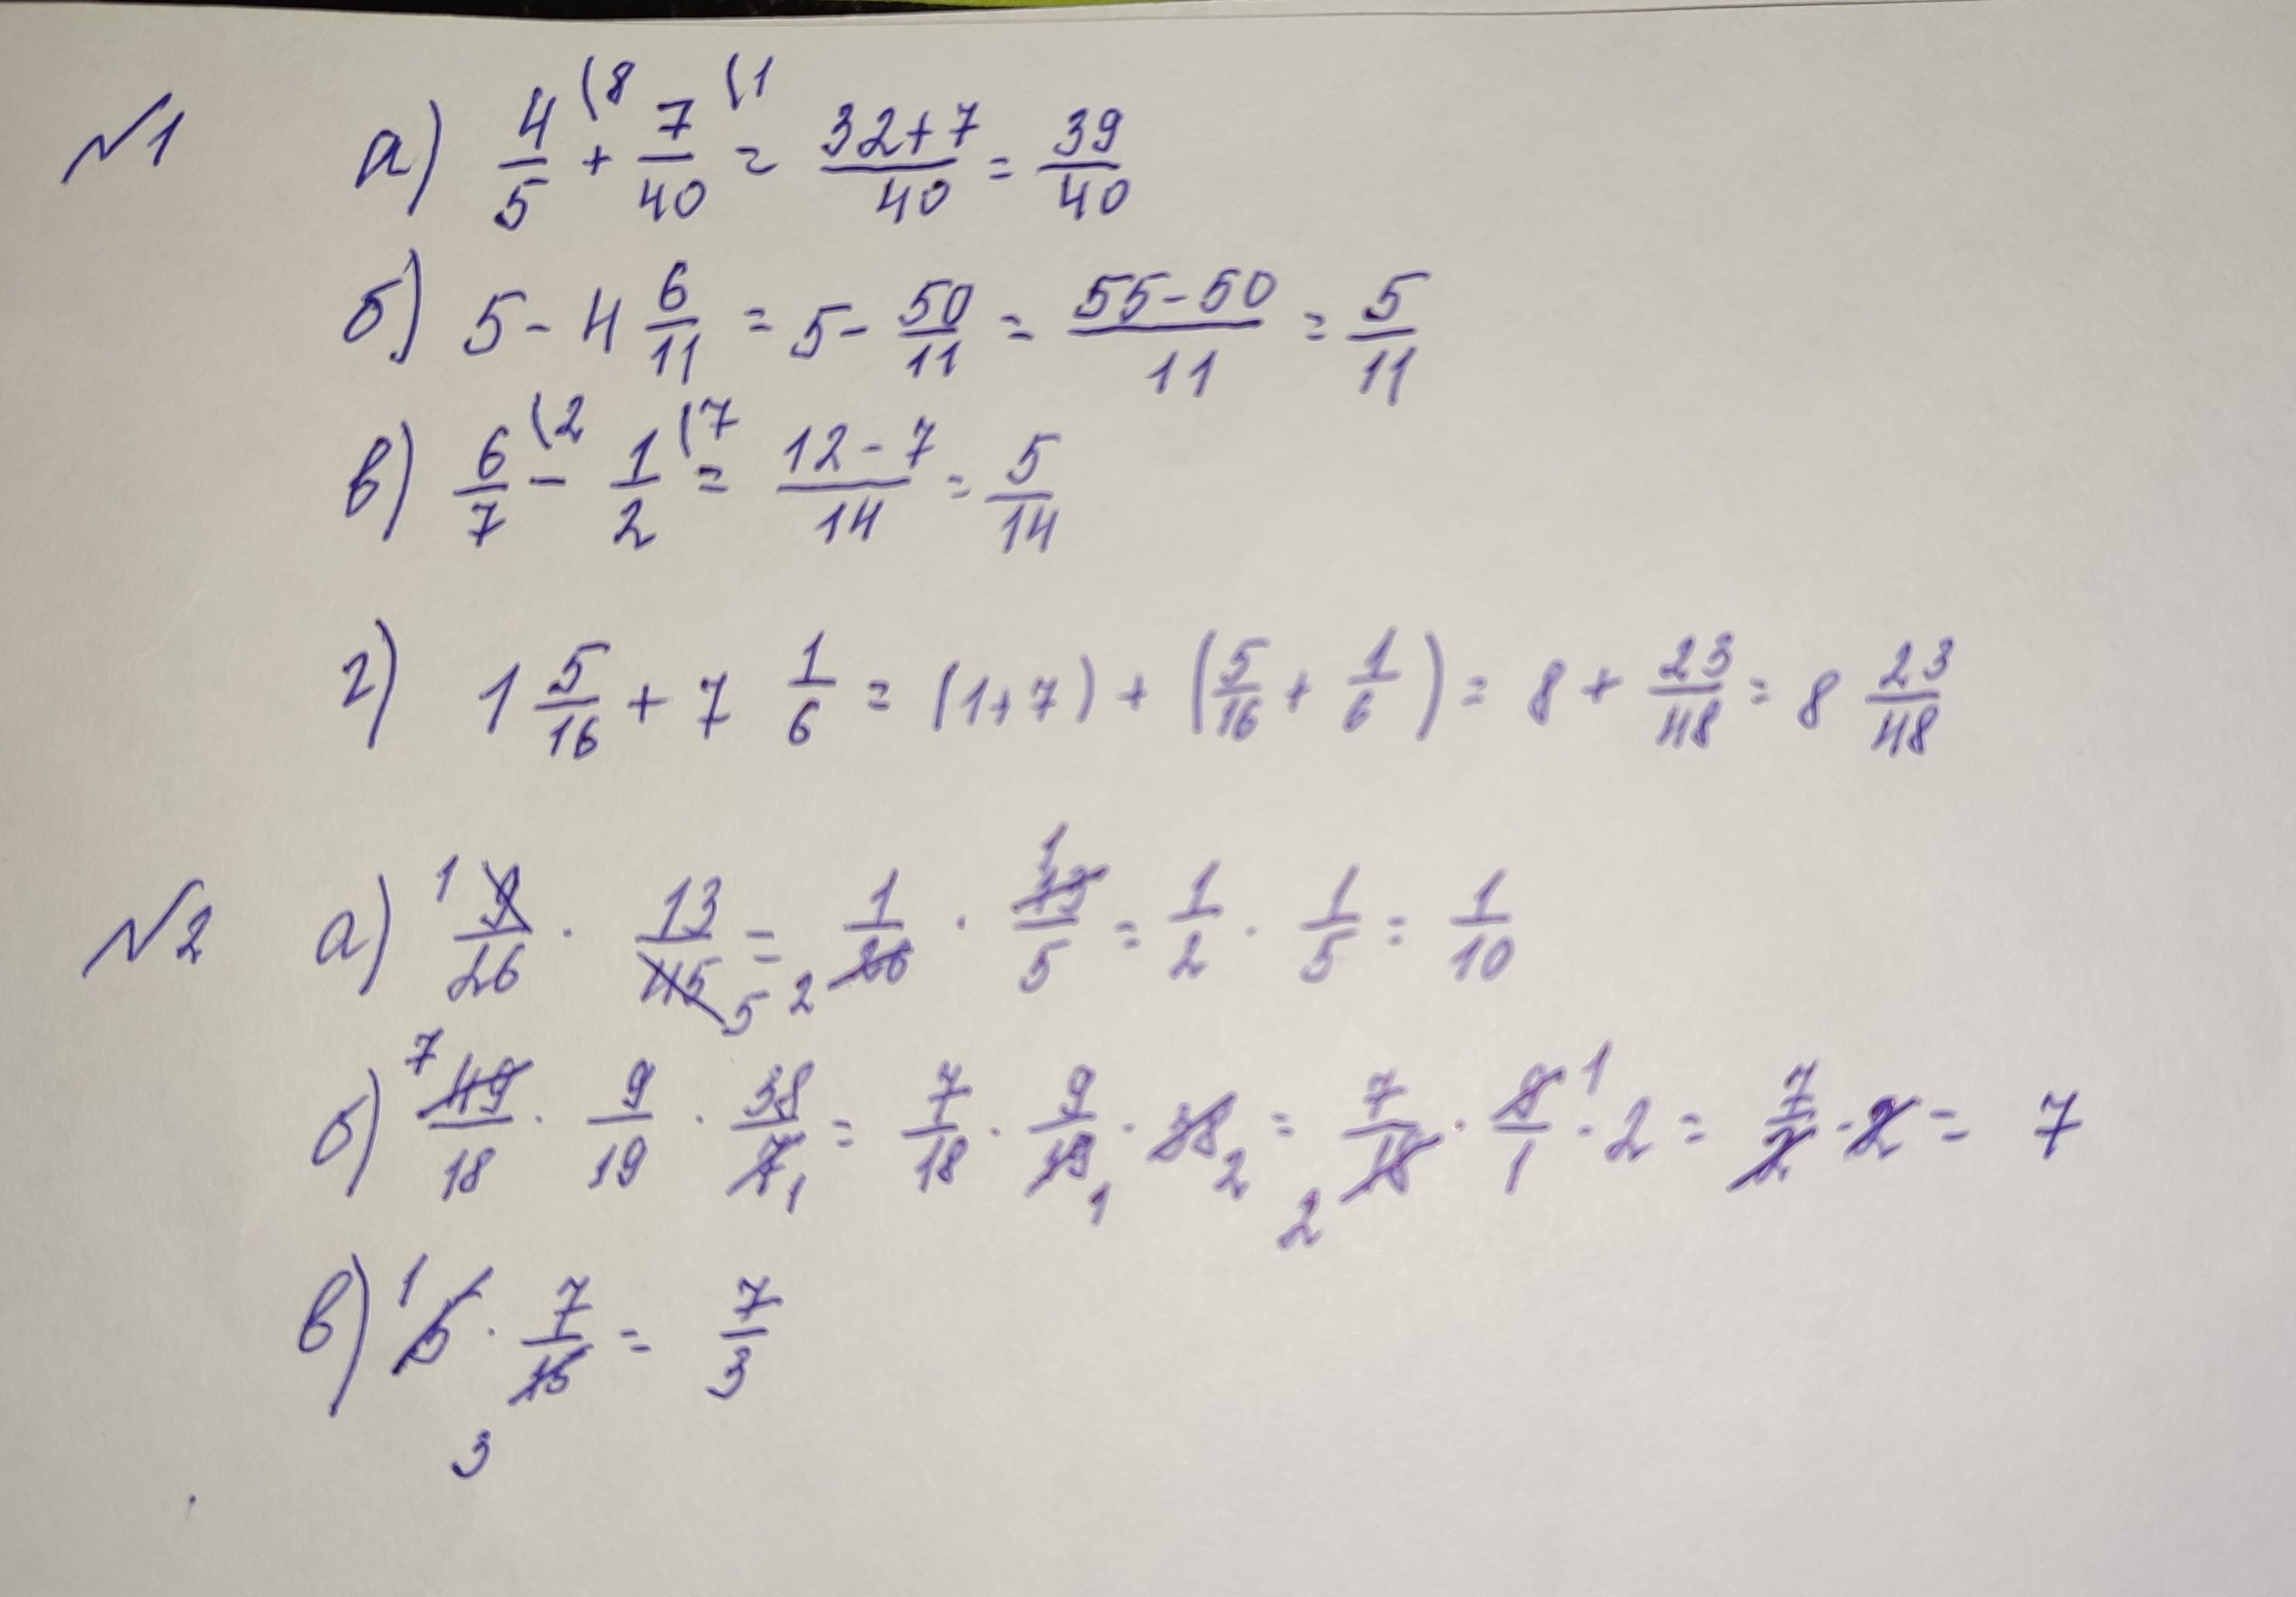 №1 а) 4/5 (8 + 7/40 (1 = 32+7/40 = 39/40
б) 5 - 4 6/11 = 5 - 50/11 = 55-50/11 = 5/11
в) 6/7 (2 - 1/2 (7 = 12-7/14 = 5/14
г) 1 5/16 + 7 1/6 = (1+7) + (5/16 + 1/6) = 8 + 23/48 = 8 23/48
№2 а) 1 9/26 · 13/45 5 = 2 1/26 · 1 13/5 = 1/2 · 1/5 = 1/10
б) 7 49/18 · 9/19 · 38/7 1 = 7/18 · 9/19 1 · 38 2 = 7/18 2 · 9/1 1 · 2 = 7/2 · 2 = 7
в) 1 5 · 7/15 3 = 7/3